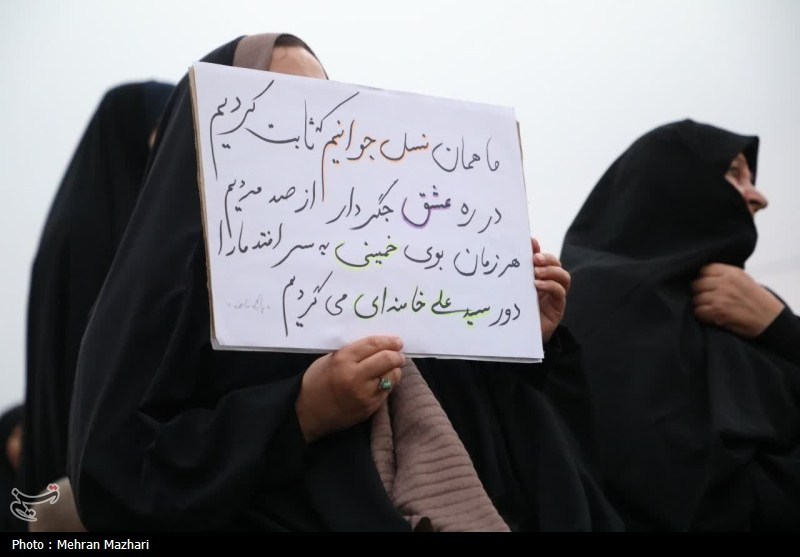 ما همان نسل جوانیم که ثابت کردیم
در ره عشق جگردار از صد مردیم
هر زمان بوی خمینی به سر افتد ما را
دور سید علی خامنه‌ای می گردیم
تسنیم
Photo : Mehran Mazhari